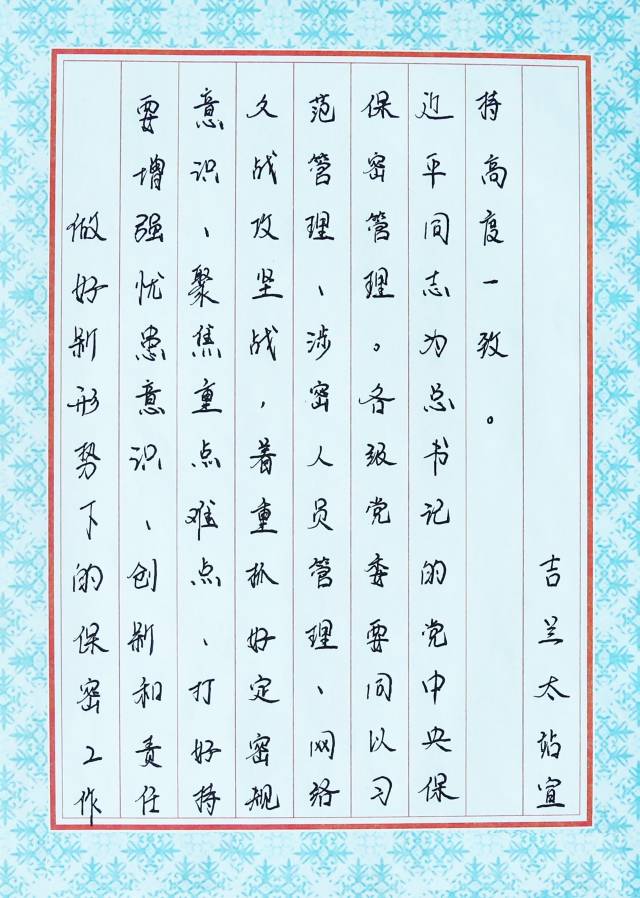 做好新形势下的保密工作
要增强忧患意识、创新和责任
意识、聚焦重点难点、打好持
久战攻坚战,着重抓好定密规
范管理、涉密人员管理、网络
保密管理。各级党委要同以习
近平同志为总书记的党中央保
持高度一致。
吉兰太站宣